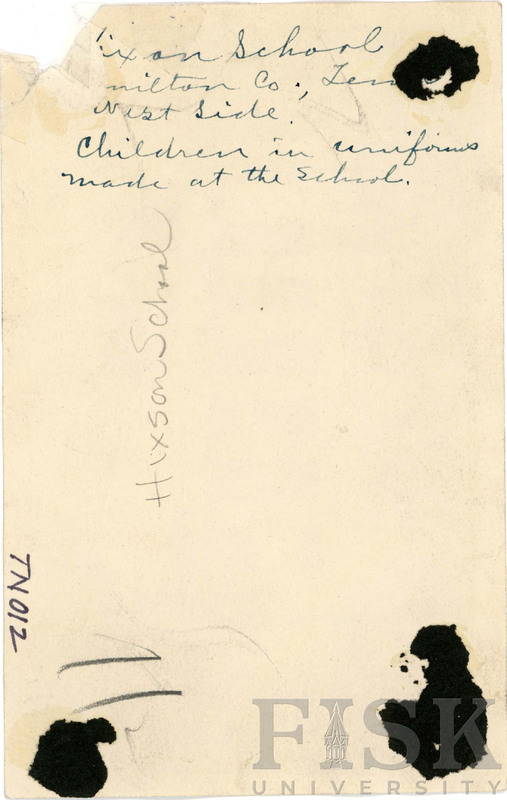 ixon School
milton Co., Ten
West Side.
Children in uniforms
made at the School.
Hixson School
TN012
FISK
UNIVERSITY